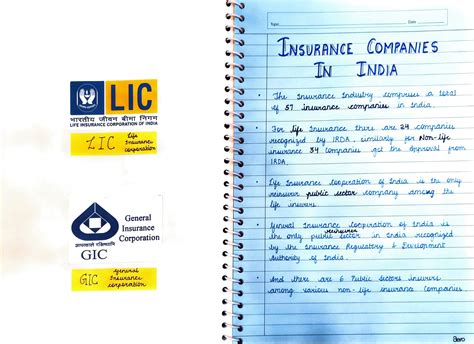 LIC
भारतीय जीवन बीमा निगम
LIFE INSURANCE CORPORATION OF INDIA
LIC Life Insurance corporation
General
Insurance
Corporation
GIC
GIC General Insurance corporation
Topic
Date
INSURANCE COMPANIES
IN INDIA
The Insurance Industry comprises a total
of 57 insurance companies in India.
For life Insurance there are 24 companies
recognized by IRDA, similarly for Non-life
insurance 34 companies got the approval from
IRDA.
Life Insurance Corporation of India is the only
public sector company among the
life insurers.
General Insurance Corporation of India is
the only public sector reinsurers in India recognized
by the Insurance Regulatory & Development
Authority of India.
And there are 6 Public Sectors insurers
among various non-life insurance companies.